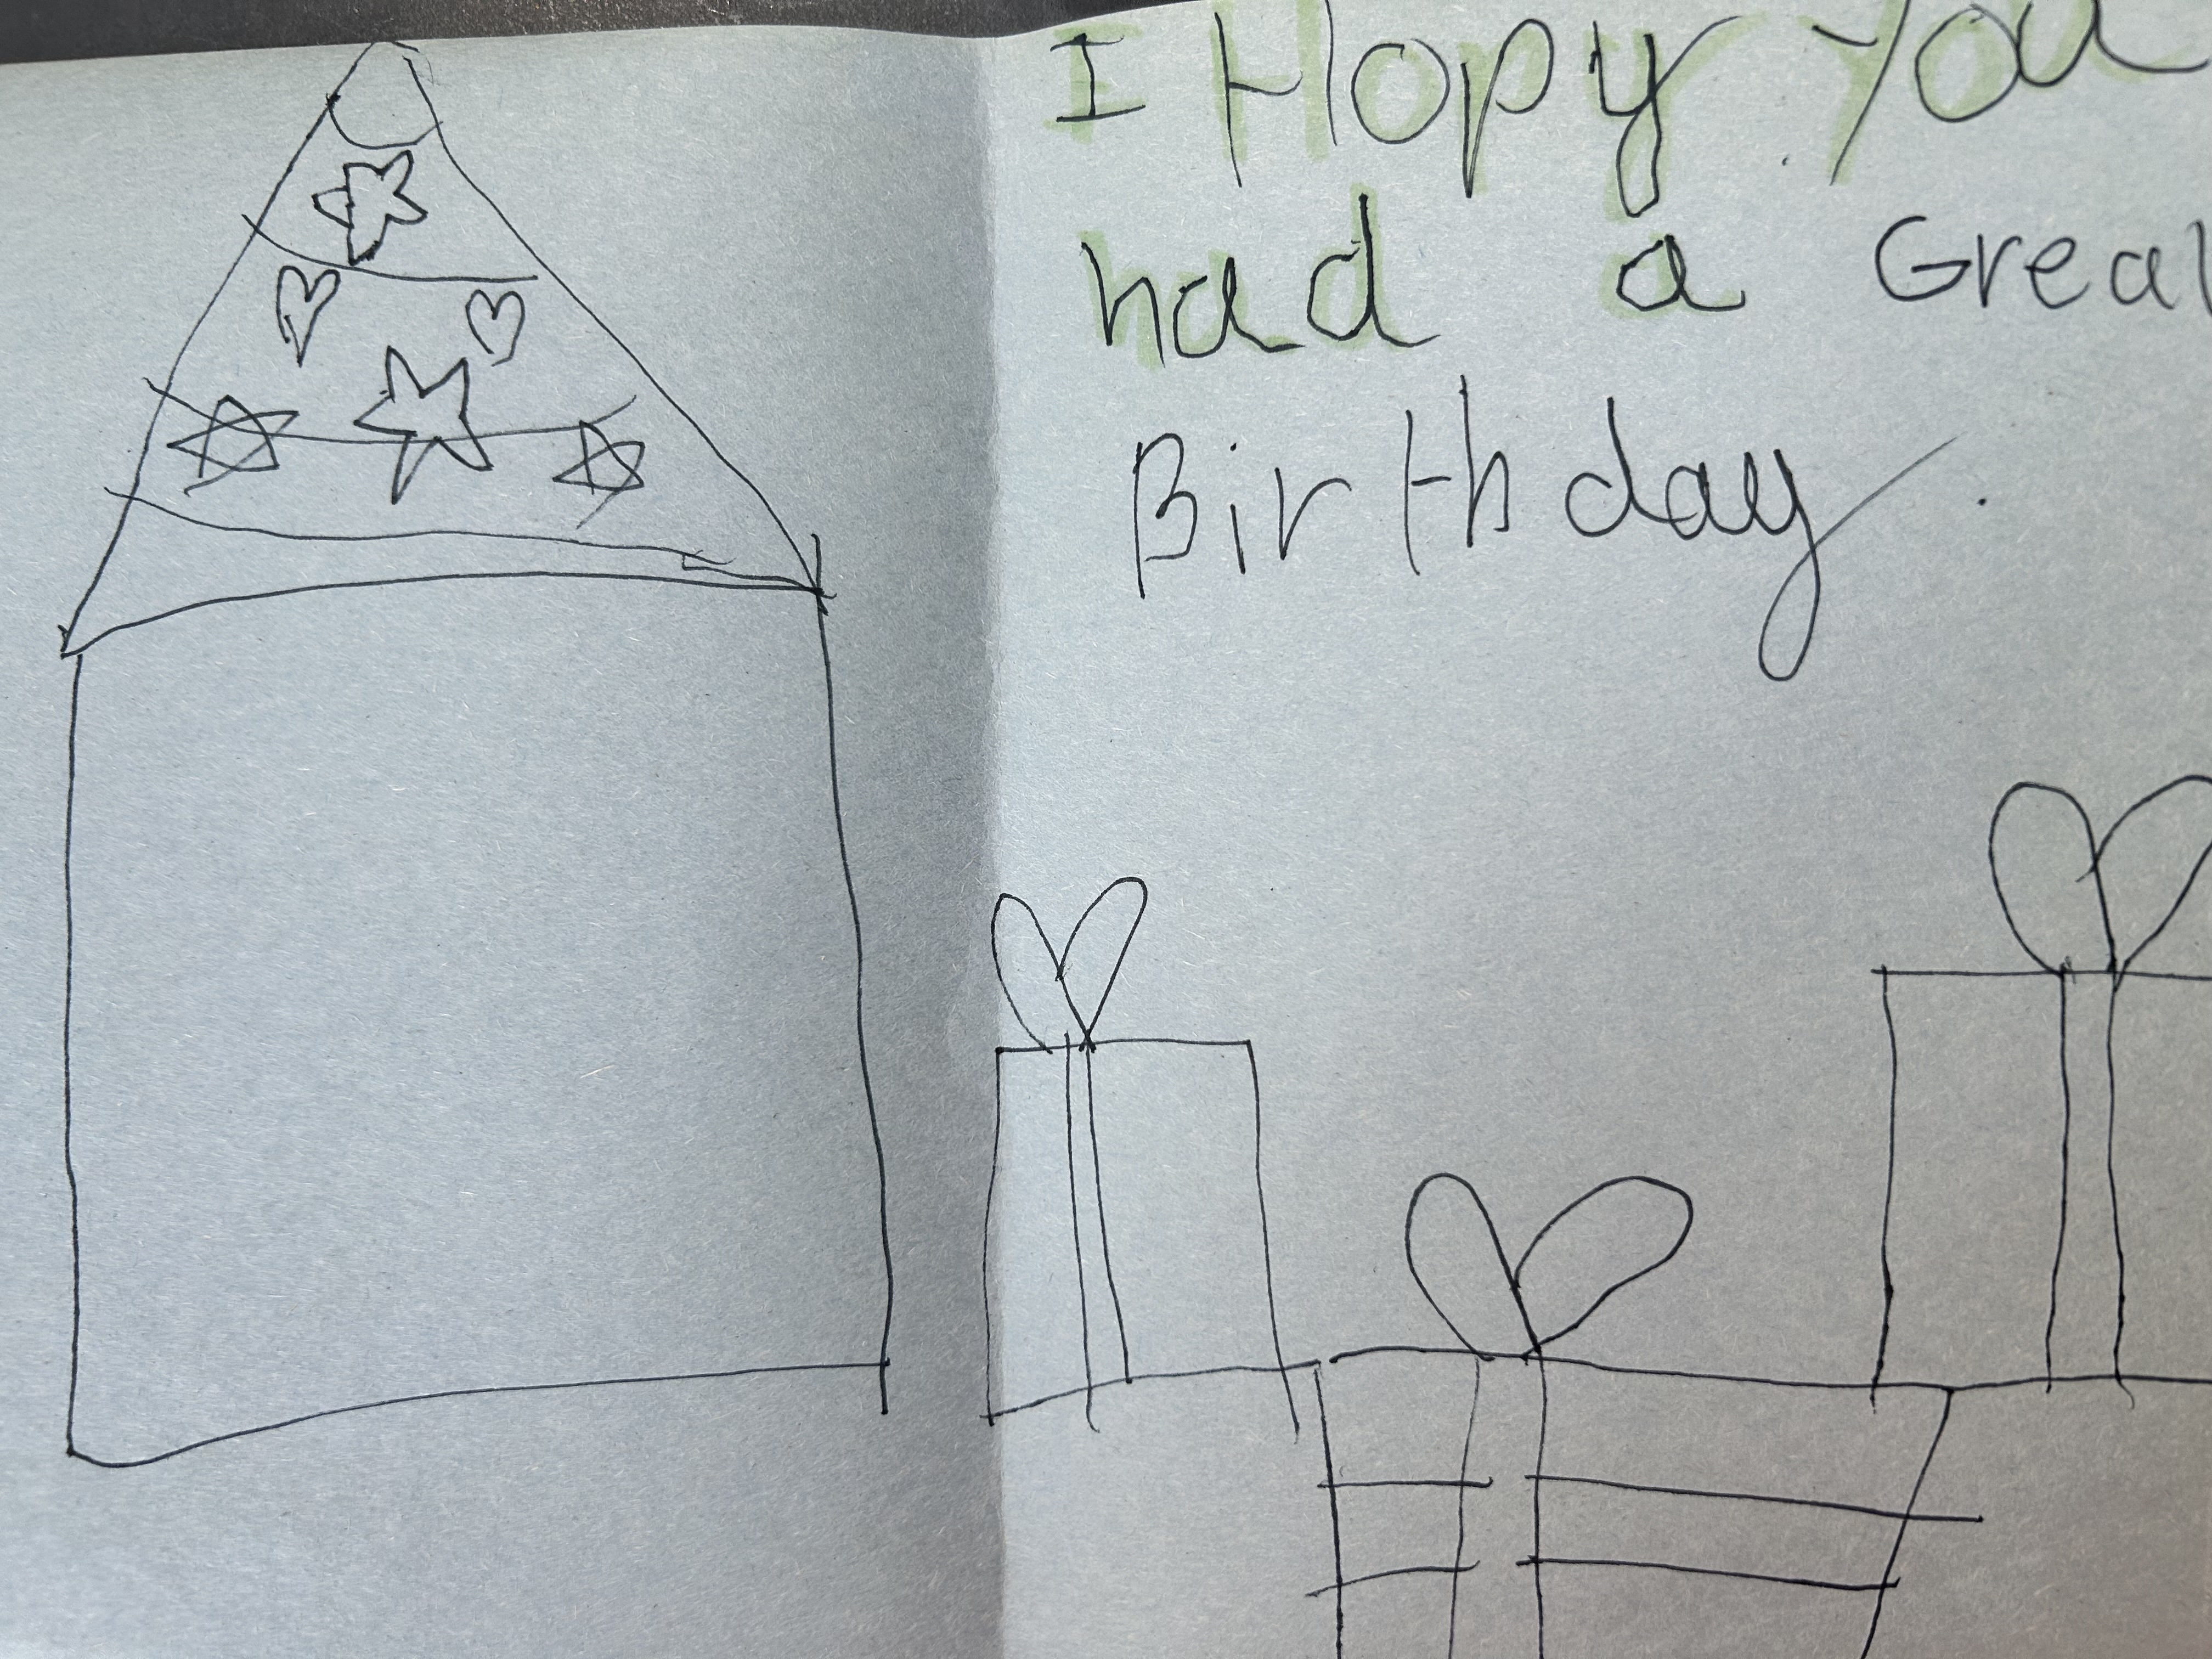 I Hopy You
had a Great
Birthday.